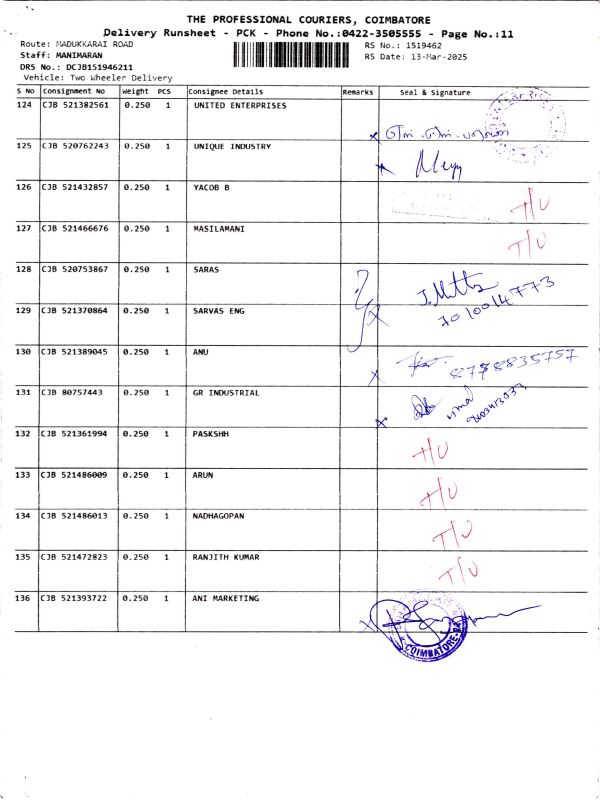 THE PROFESSIONAL COURIERS, COIMBATORE
Delivery Runsheet - PCK - Phone No.:0422-3505555 - Page No.:11
Route: MADUKKARAI ROAD RS No.: 1519462
Staff: MANIMARAN RS Date: 13-Mar-2025
DRS No.: DCJB151946211
Vehicle: Two Wheeler Delivery
S No Consignment No Weight PCS Consignee Details Remarks Seal & Signature
124 CJB 521382561 0.250 1 UNITED ENTERPRISES
125 CJB 520762243 0.250 1 UNIQUE INDUSTRY
126 CJB 521432857 0.250 1 YACOB B T/U
127 CJB 521466676 0.250 1 MASILAMANI T/U
128 CJB 520753867 0.250 1 SARAS 7010014773
129 CJB 521370864 0.250 1 SARVAS ENG
130 CJB 521389045 0.250 1 ANU 8778835757
131 CJB 80757443 0.250 1 GR INDUSTRIAL
132 CJB 521361994 0.250 1 PASKSHH T/U
133 CJB 521486009 0.250 1 ARUN T/U
134 CJB 521486013 0.250 1 NADHAGOPAN T/U
135 CJB 521472823 0.250 1 RANJITH KUMAR T/U
136 CJB 521393722 0.250 1 ANI MARKETING
COIMBATORE